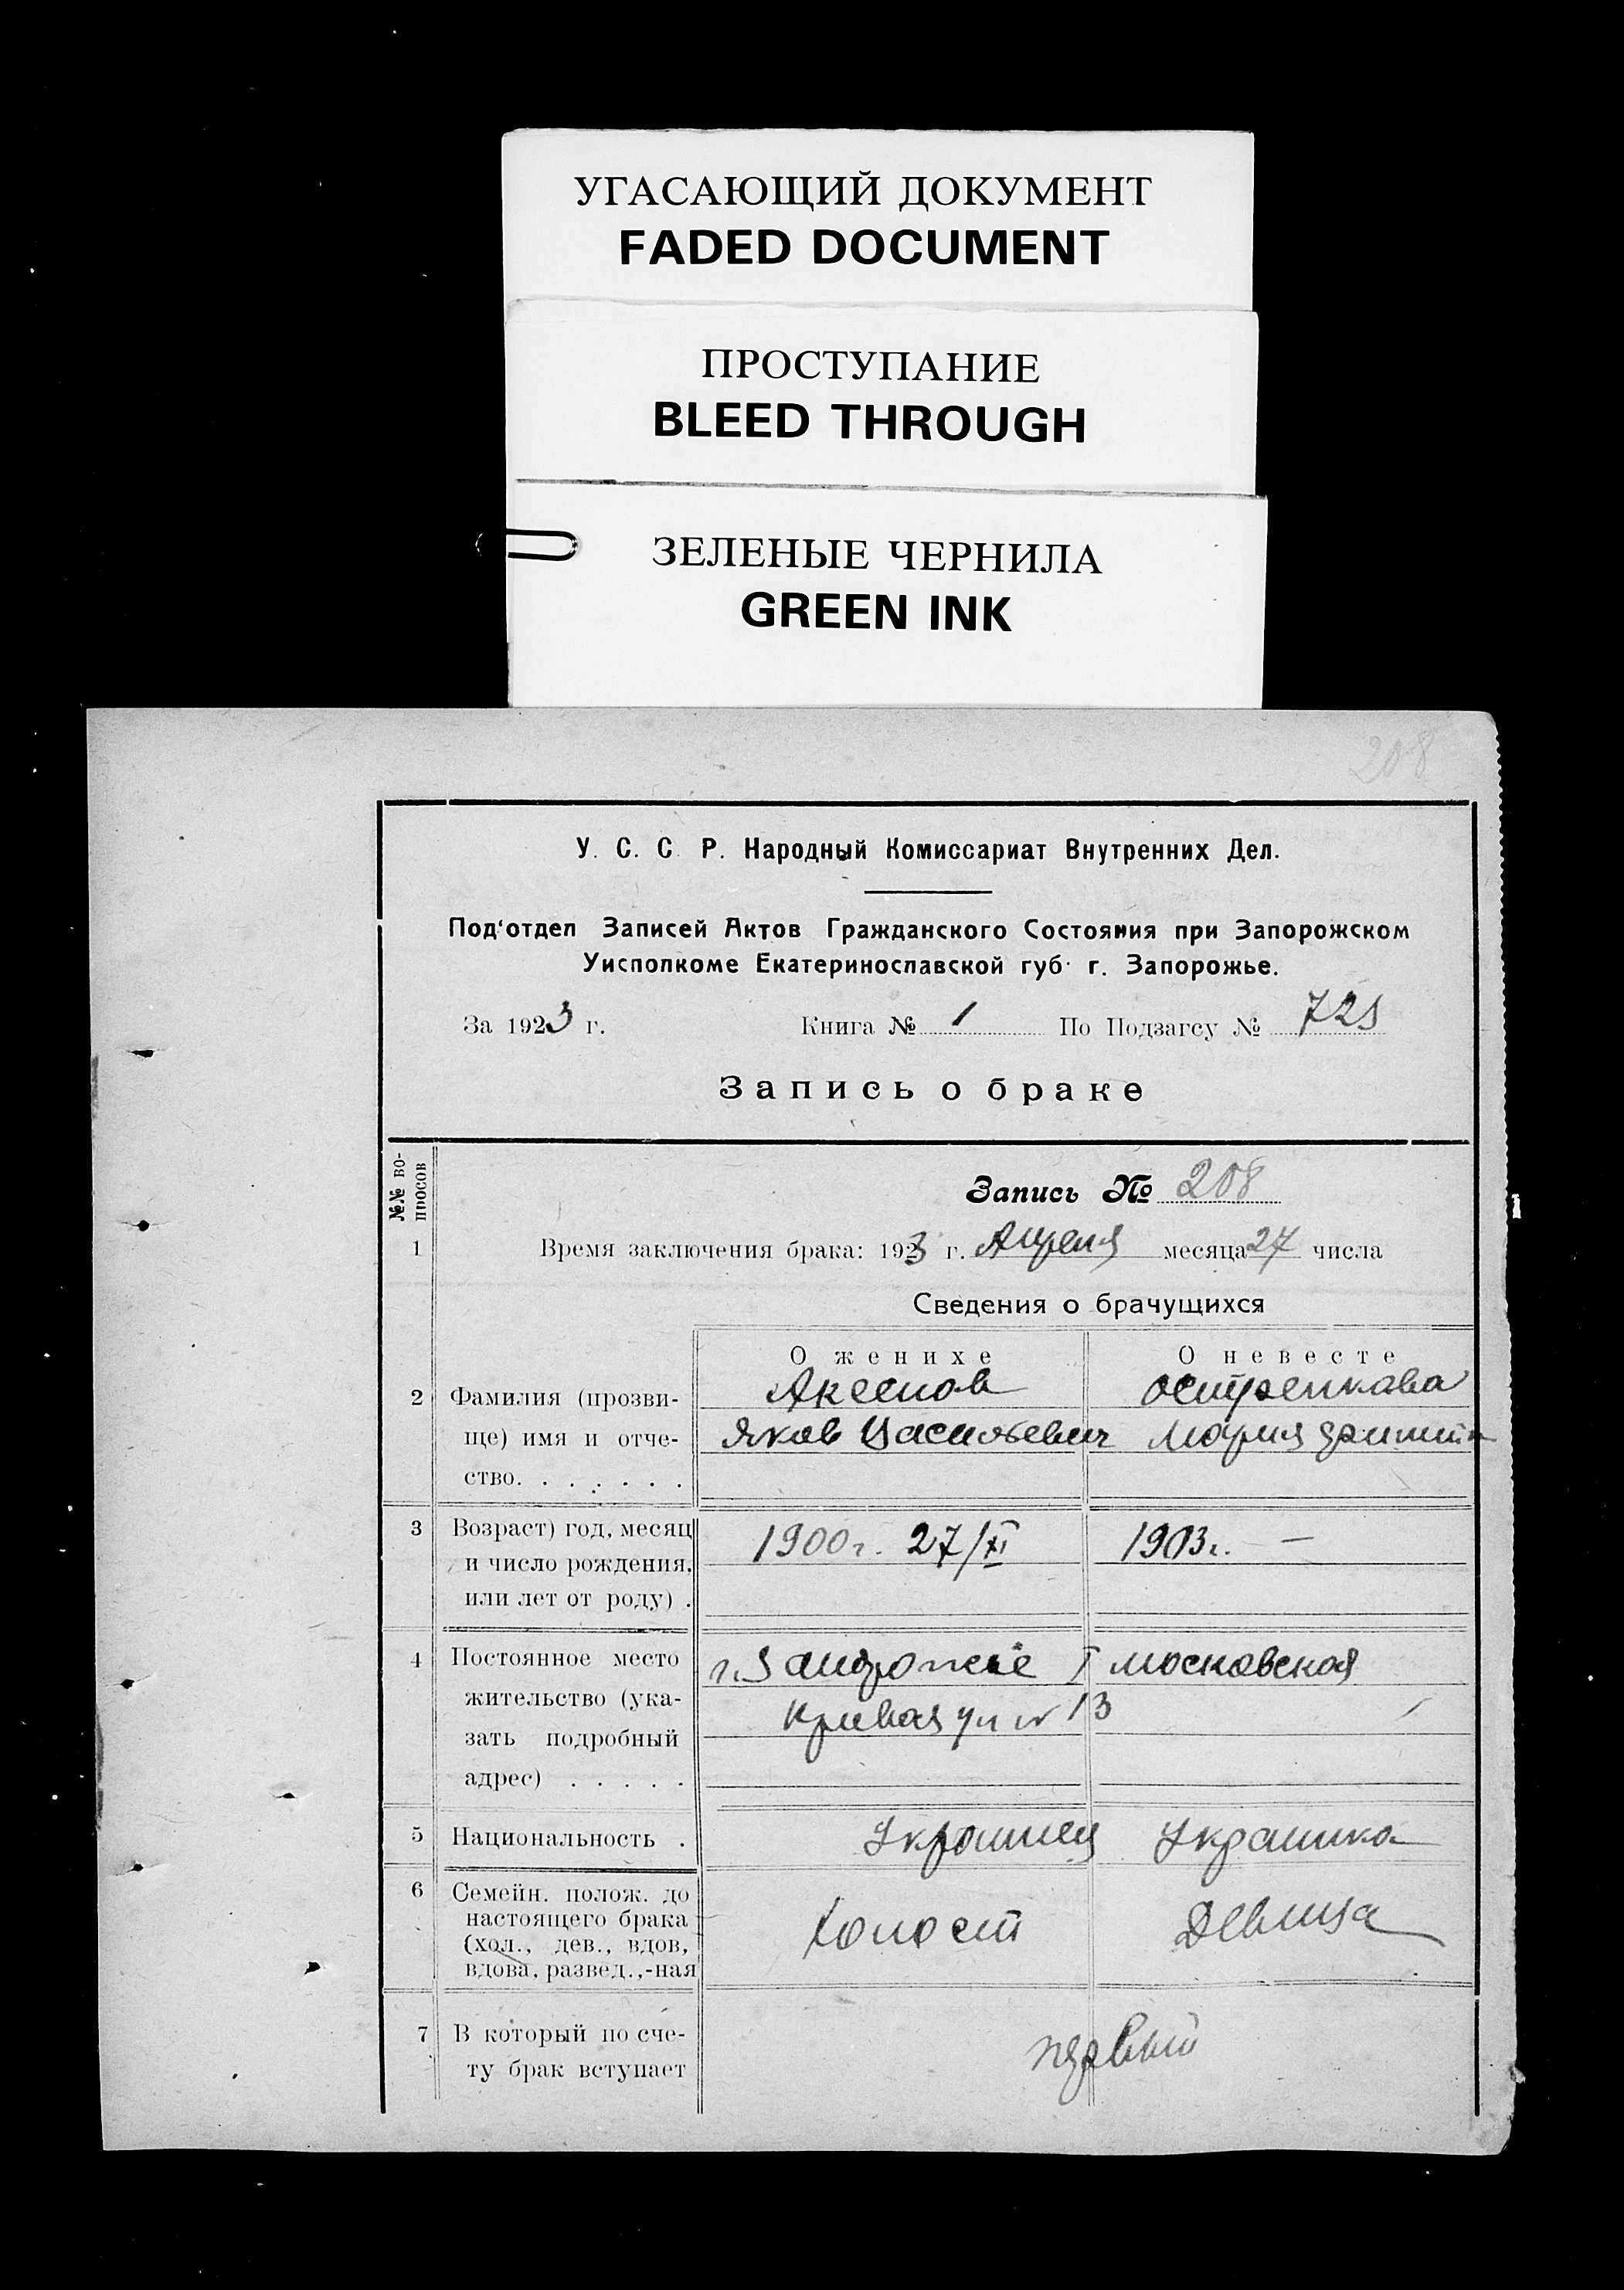 УГАСАЮЩИЙ ДОКУМЕНТ
FADED DOCUMENT
ПРОСТУПАНИЕ
BLEED THROUGH
ЗЕЛЕНЫЕ ЧЕРНИЛА
GREEN INK
208
У. С. С Р. Народный Комиссариат Внутренних Дел.
Под'отдел Записей Актов Гражданского Состояния при Запорожском
Уисполкоме Екатеринославской губ. г. Запорожье.
За 1923 г. Книга № 1 По Подзагсу №
Запись о браке
№№ во-
просов
Запись № 208
1 Время заключения брака: 1923 г. Апреля месяца 27 числа
Сведения о брачущихся
О женихе О невесте
2 Фамилия (прозви- Аксенов
ще) имя и отче- Яков Мария
ство. . . . . . .
3 Возраст) год, месяц 1900 г. 27/XI 1903 г. —
и число рождения,
или лет от роду) .
4 Постоянное место г. Запорожье I Московская
жительство (ука- Кривая ул № 13
зать подробный
адрес) . . . . .
5 Национальность . Украинец Украинка
6 Семейн. полож. до
настоящего брака Холост Девица
(хол., дев., вдов,
вдова, развед.,-ная
7 В который по сче- первый
ту брак вступает